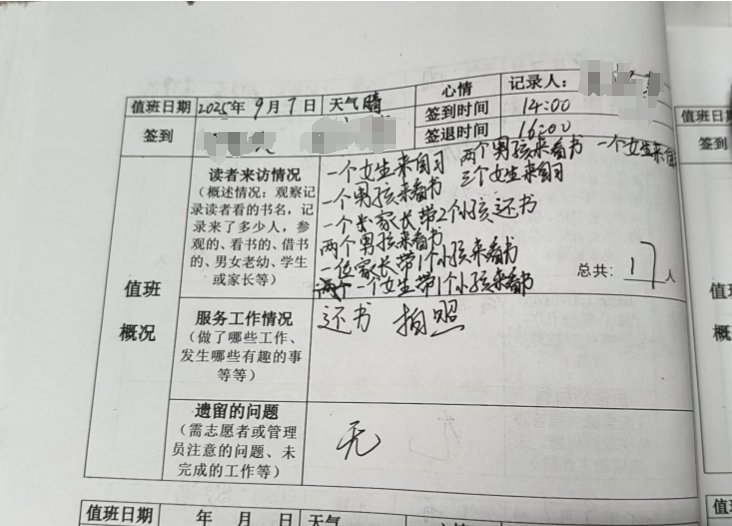 值班日期 2025年 9月 7日 天气 晴 心情 记录人:
签到 签到时间 14:00
签退时间 16:00
值班概况
读者来访情况
(概述情况:观察记
录读者看的书名,记
录来了多少人,参
观的、看书的、借书
的、男女老幼、学生
或家长等)
一个女生来自习 两个男孩来看书 一个女生来自习
一个男孩来看书 三个女生来自习
一个家长带2个小孩还书
两个男孩来看书
一位家长带1个小孩来看书
一个女生带1个小孩来看书
总共:17人
服务工作情况
(做了哪些工作、
发生哪些有趣的事
等等)
还书 拍照
遗留的问题
(需志愿者或管理
员注意的问题、未
完成的工作等)
无
值班日期 年 月 日 天气
值班日期
签到